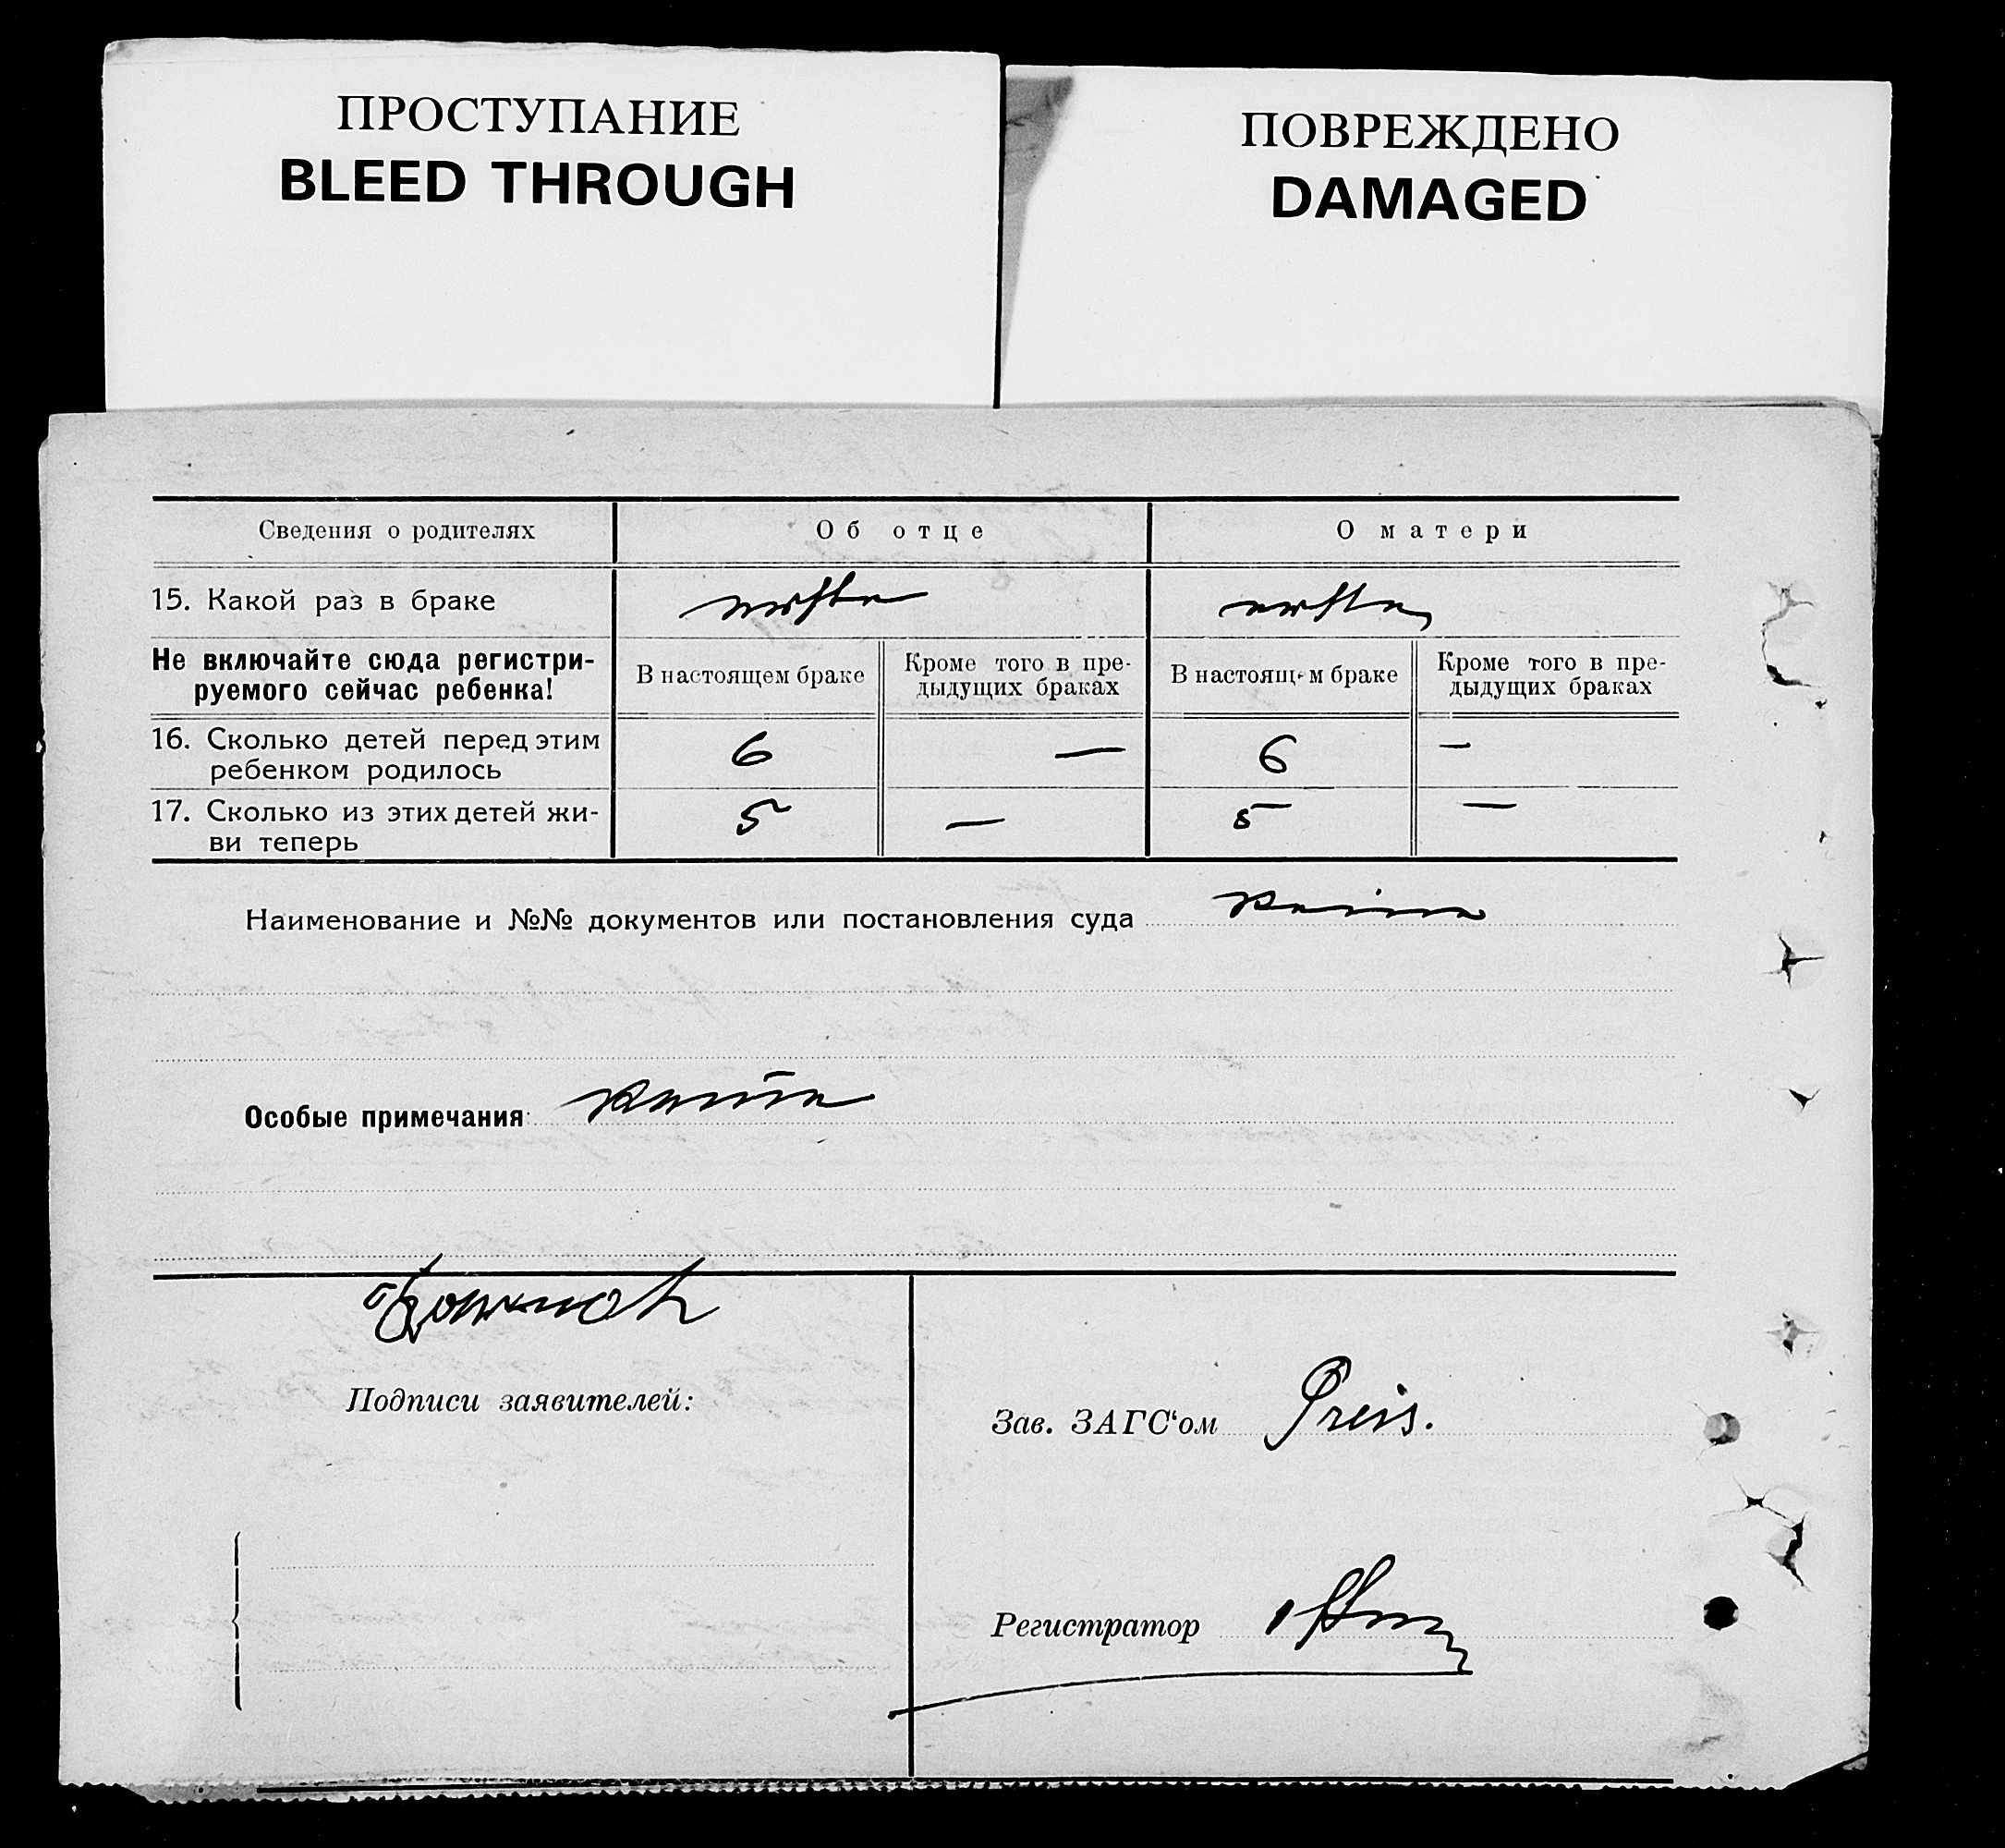 ПРОСТУПАНИЕ
BLEED THROUGH
ПОВРЕЖДЕНО
DAMAGED
Сведения о родителях Об отце О матери
15. Какой раз в браке erste erste
Не включайте сюда регистри-
руемого сейчас ребенка!
В настоящем браке Кроме того в пре-
дыдущих браках
В настоящем браке Кроме того в пре-
дыдущих браках
16. Сколько детей перед этим
ребенком родилось 6 — 6 —
17. Сколько из этих детей жи-
ви теперь 5 — 5 —
Наименование и №№ документов или постановления суда Keine
Особые примечания: Keine
Подписи заявителей:
Зав. ЗАГС'ом Preis.
Регистратор